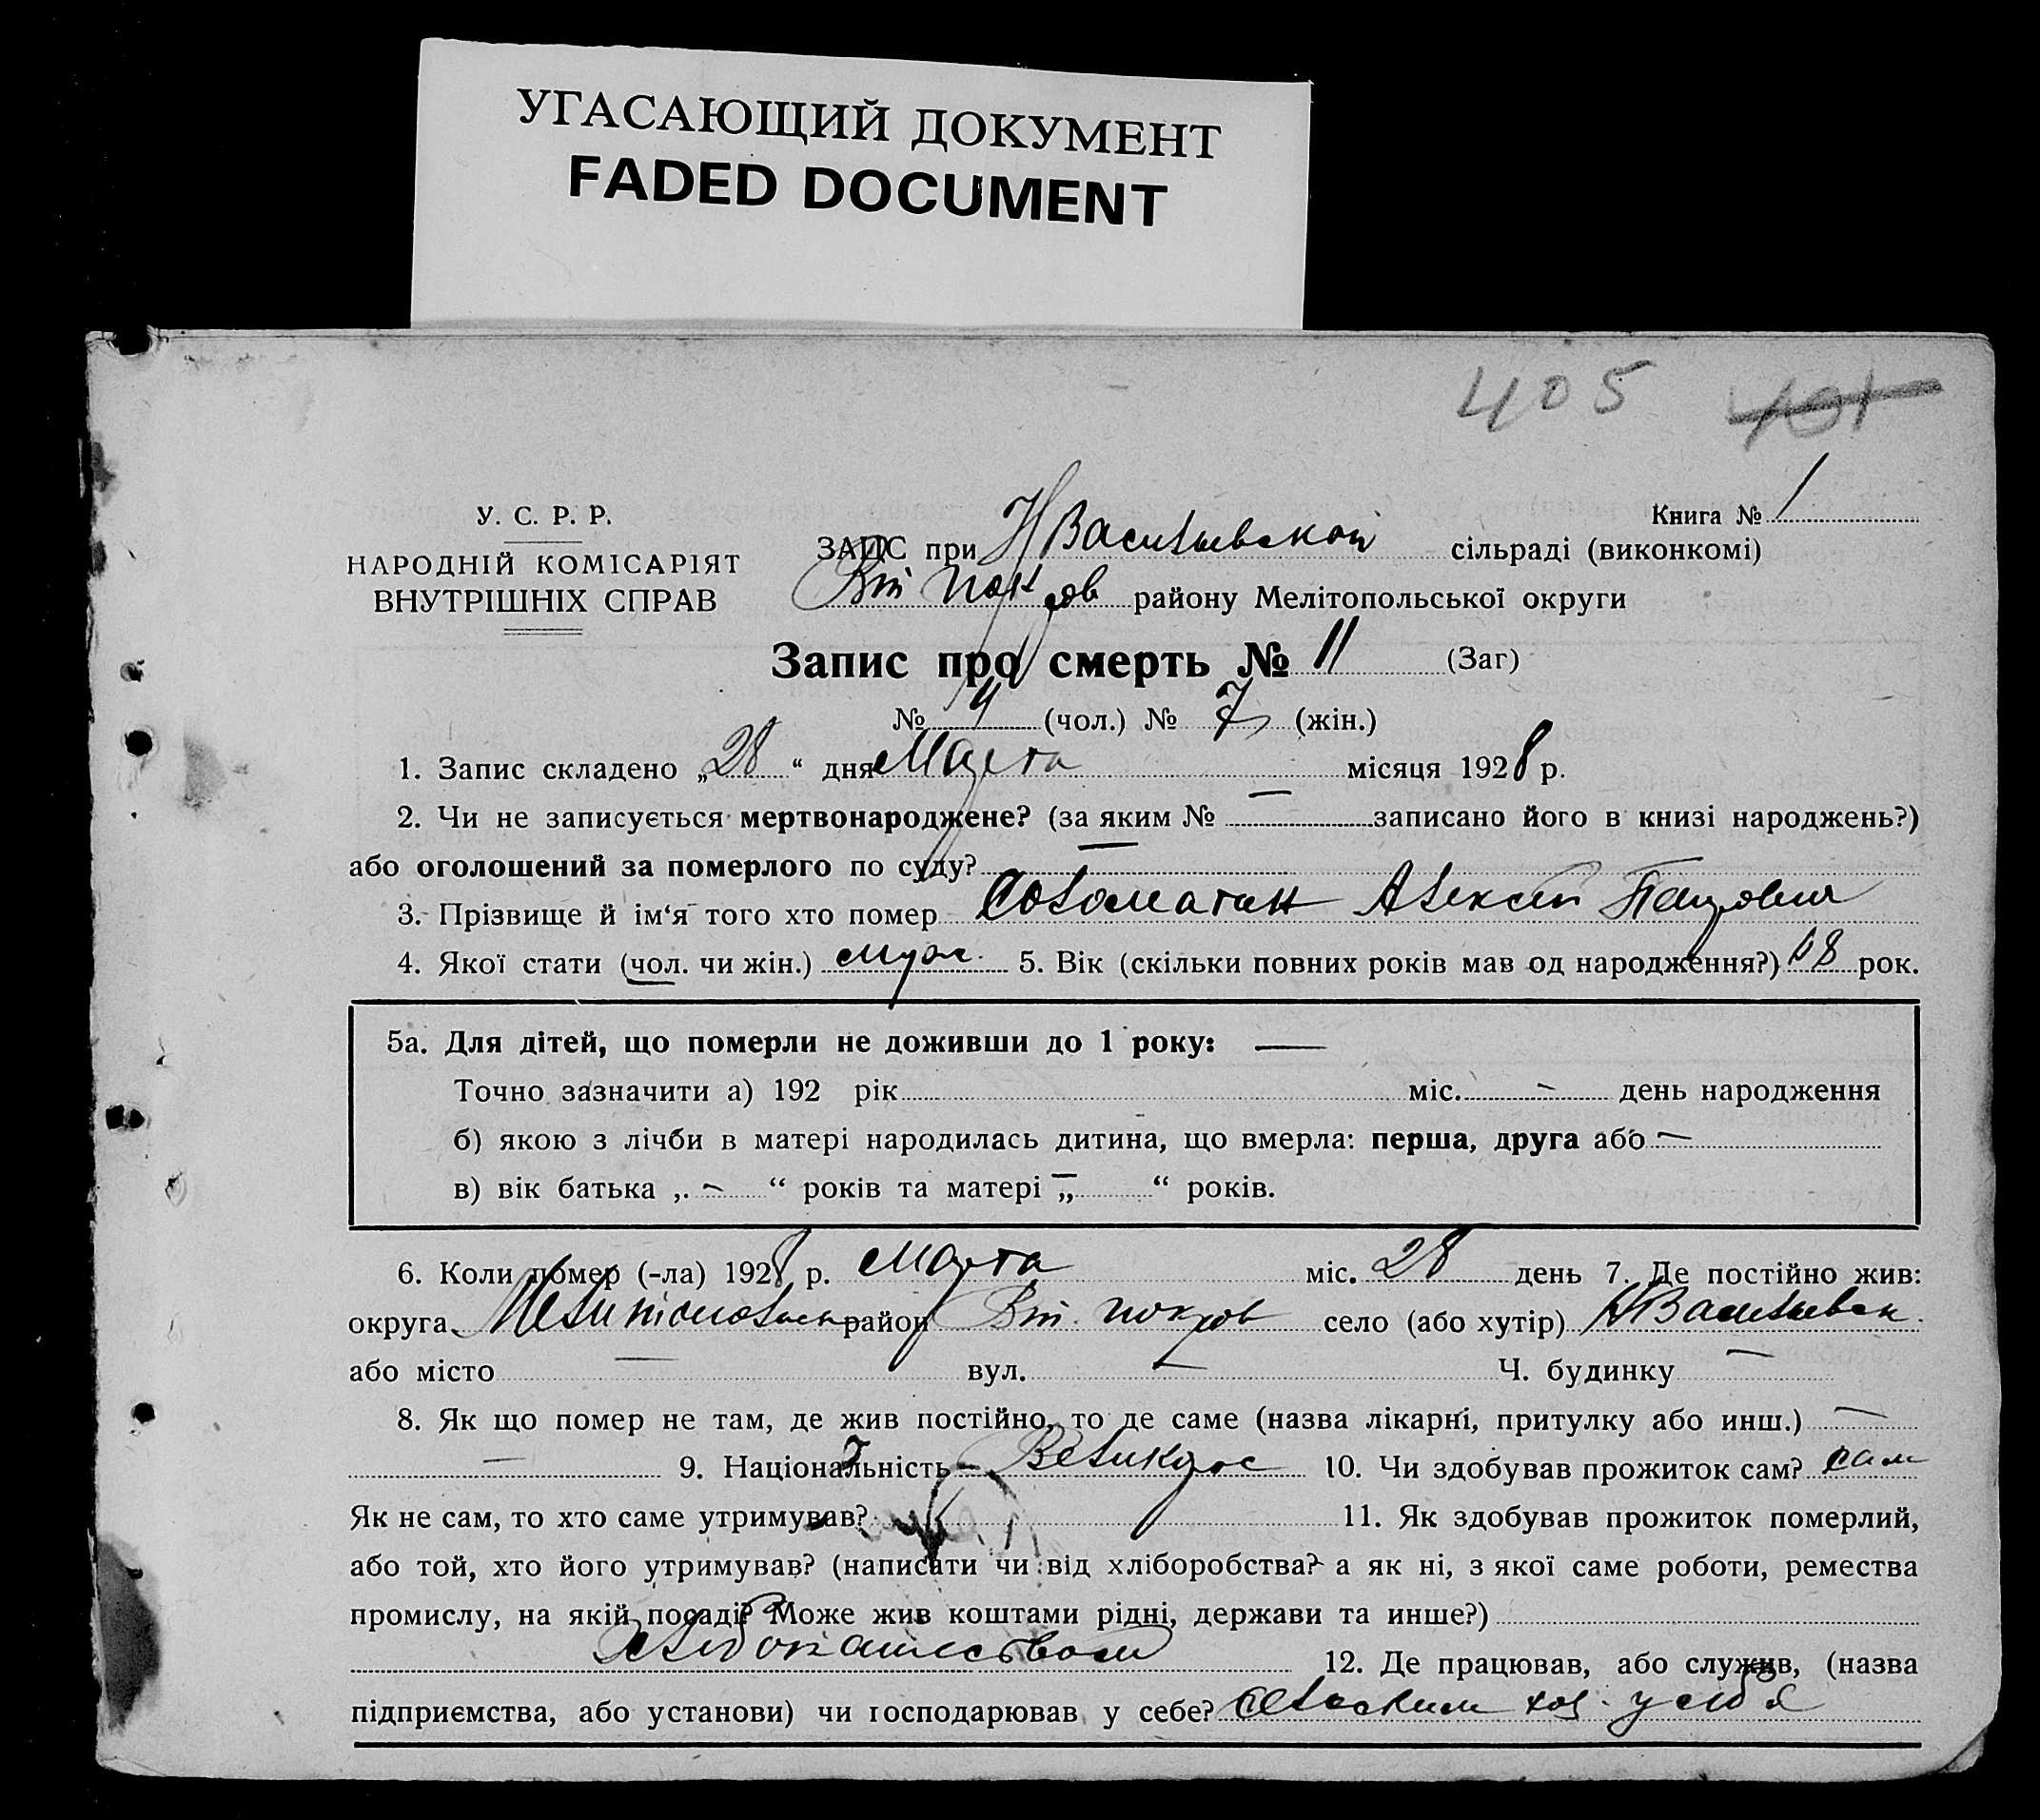 УГАСАЮЩИЙ ДОКУМЕНТ
FADED DOCUMENT
405 401
У. С. Р. Р.
НАРОДНІЙ КОМІСАРІЯТ
ВНУТРІШНІХ СПРАВ
Книга № 1
ЗАПИС при Н Васильевской сільраді (виконкомі)
Вт покров району Мелітопольської округи
Запис про смерть № 11 (Заг)
№ 4 (чол.) № 7 (жін.)
1. Запис складено „28“ дня Марта місяця 1928 р.
2. Чи не записується мертвонароджене? (за яким № — записано його в книзі народжень?)
або оголошений за померлого по суду? —
3. Прізвище й ім‘я того хто помер Соломатин Алексей
4. Якої стати (чол. чи жін.) муж. 5. Вік (скільки повних років мав од народження?) 68 рок.
5а. Для дітей, що померли не доживши до 1 року: —
Точно зазначити а) 192 рік міс. — день народження
б) якою з лічби в матері народилась дитина, що вмерла: перша, друга або —
в) вік батька „ — “ років та матері „ — “ років.
6. Коли помер (-ла) 1928 р. Марта міс. 28 день 7. Де постійно жив:
округа Мелитопольск район Вт. покров село (або хутір) Н Васильевск.
або місто — вул. — Ч. будинку —
8. Як що помер не там, де жив постійно, то де саме (назва лікарні, притулку або инш.) —
— 9. Національність Великорос 10. Чи здобував прожиток сам? сам
Як не сам, то хто саме утримував? 11. Як здобував прожиток померлий,
або той, хто його утримував? (написати чи від хліборобства? а як ні, з якої саме роботи, ремества
промислу, на якій посаді? Може жив коштами рідні, держави та инше?)
хлебопашеством 12. Де працював, або служив, (назва
підприємства, або установи) чи господарював у себе? сельским хоз. у себя